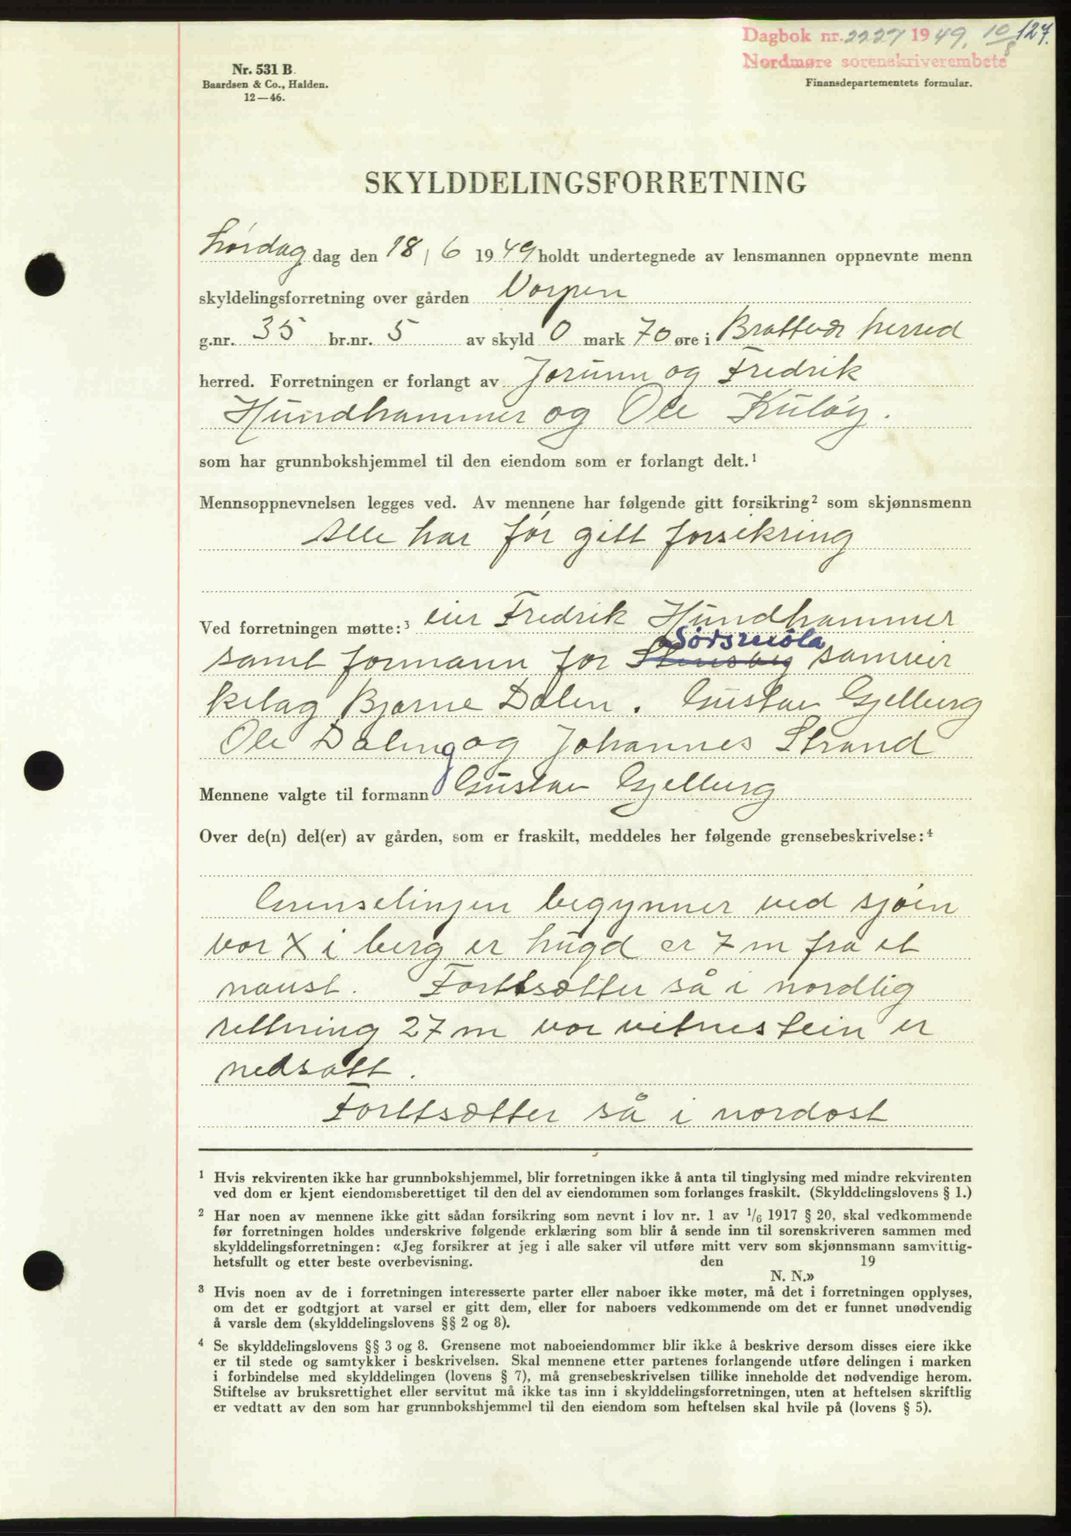 Dagbok nr. 2227 1949. 10/8 127.
Nordmøre sorenskriverembete
Nr. 531 B.
Baardsen & Co., Halden.
12—46.
Finansdepartementets formular.
SKYLDDELINGSFORRETNING
Lørdag dag den 18/6 1949 holdt undertegnede av lensmannen oppnevnte menn
skyldelingsforretning over gården Vorpen
g.nr. 35 br.nr. 5 av skyld 0 mark 70 øre i Brattvær herred
herred. Forretningen er forlangt av Jorunn og Fredrik
Hundhammer og Ole Kuløy.
som har grunnbokshjemmel til den eiendom som er forlangt delt.¹
Mennsoppnevnelsen legges ved. Av mennene har følgende gitt forsikring² som skjønnsmenn
Alle har før gitt forsikring
Ved forretningen møtte:³ eier Fredrik Hundhammer
Sørsmøla
samt formann for sameier
kelag Bjarne Dalen. Gustav Gjelberg
Ole Daling og Johannes Strand
Mennene valgte til formann Gustav Gjelberg
Over de(n) del(er) av gården, som er fraskilt, meddeles her følgende grensebeskrivelse:⁴
Grenselinjen begynner ved sjøen
vor X i berg er hugd er 7 m fra et
naust. Forttsætter så i nordlig
rettning 27 m vor vitnestein er
nedsatt.
Forttsætter så i nordost
¹ Hvis rekvirenten ikke har grunnbokshjemmel, blir forretningen ikke å anta til tinglysing med mindre rekvirenten
ved dom er kjent eiendomsberettiget til den del av eiendommen som forlanges fraskilt. (Skylddelingslovens § 1.)
² Har noen av mennene ikke gitt sådan forsikring som nevnt i lov nr. 1 av 1/6 1917 § 20, skal vedkommende
før forretningen holdes underskrive følgende erklæring som blir å sende inn til sorenskriveren sammen med
skylddelingsforretningen: «Jeg forsikrer at jeg i alle saker vil utføre mitt verv som skjønnsmann samvittig-
hetsfullt og etter beste overbevisning. den 19
N. N.»
³ Hvis noen av de i forretningen interesserte parter eller naboer ikke møter, må det i forretningen opplyses,
om det er godtgjort at varsel er gitt dem, eller for naboers vedkommende om det er funnet unødvendig
å varsle dem (skylddelingslovens §§ 2 og 8).
⁴ Se skylddelingslovens §§ 3 og 8. Grensene mot naboeiendommer blir ikke å beskrive dersom disses eiere ikke
er til stede og samtykker i beskrivelsen. Skal mennene etter partenes forlangende utføre delingen i marken
i forbindelse med skylddelingen (lovens § 7), må grensebeskrivelsen tillike inneholde det nødvendige herom.
Stiftelse av bruksrettighet eller servitut må ikke tas inn i skylddelingsforretningen, uten at heftelsen skriftlig
er vedtatt av den som har grunnbokshjemmel til den eiendom som heftelsen skal hvile på (lovens § 5).